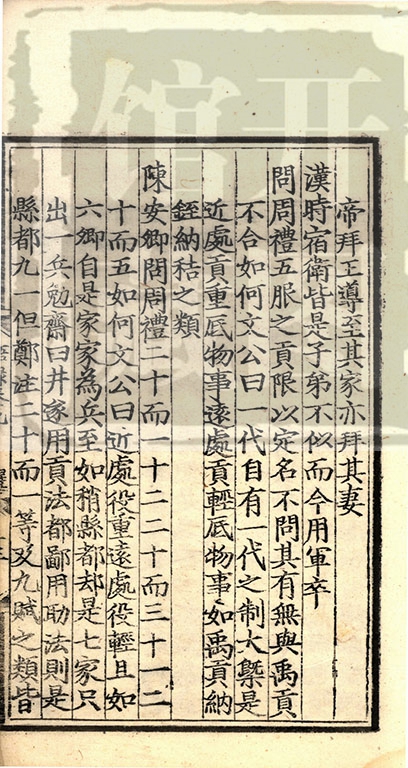 帝拜王導至其家亦拜其妻
漢時宿衛皆是子弟不似而今用軍卒
問周禮五服之貢限以定名不問其有無與禹貢
不合如何文公曰一代自有一代之制大槩是
近處貢重底物事遠處貢輕底物事如禹貢納
銍納秸之類
陳安卿問周禮二十而一十二二十而三十一二
十而五如何文公曰近處役重遠處役輕且如
六鄉自是家家為兵至如稍縣都却是七家只
出一兵勉齋曰井家用貢法都鄙用助法則是
縣都九一但鄭注二十而一等及九賦之類皆